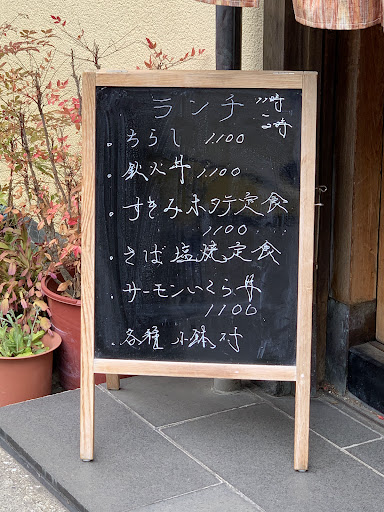 ランチ 11時
～2時
・ちらし 1,100
・鉄火丼 1,100
・すきみホタテ定食
1100
・さば塩焼定食
・サーモンいくら丼
1100
・各種 小鉢付